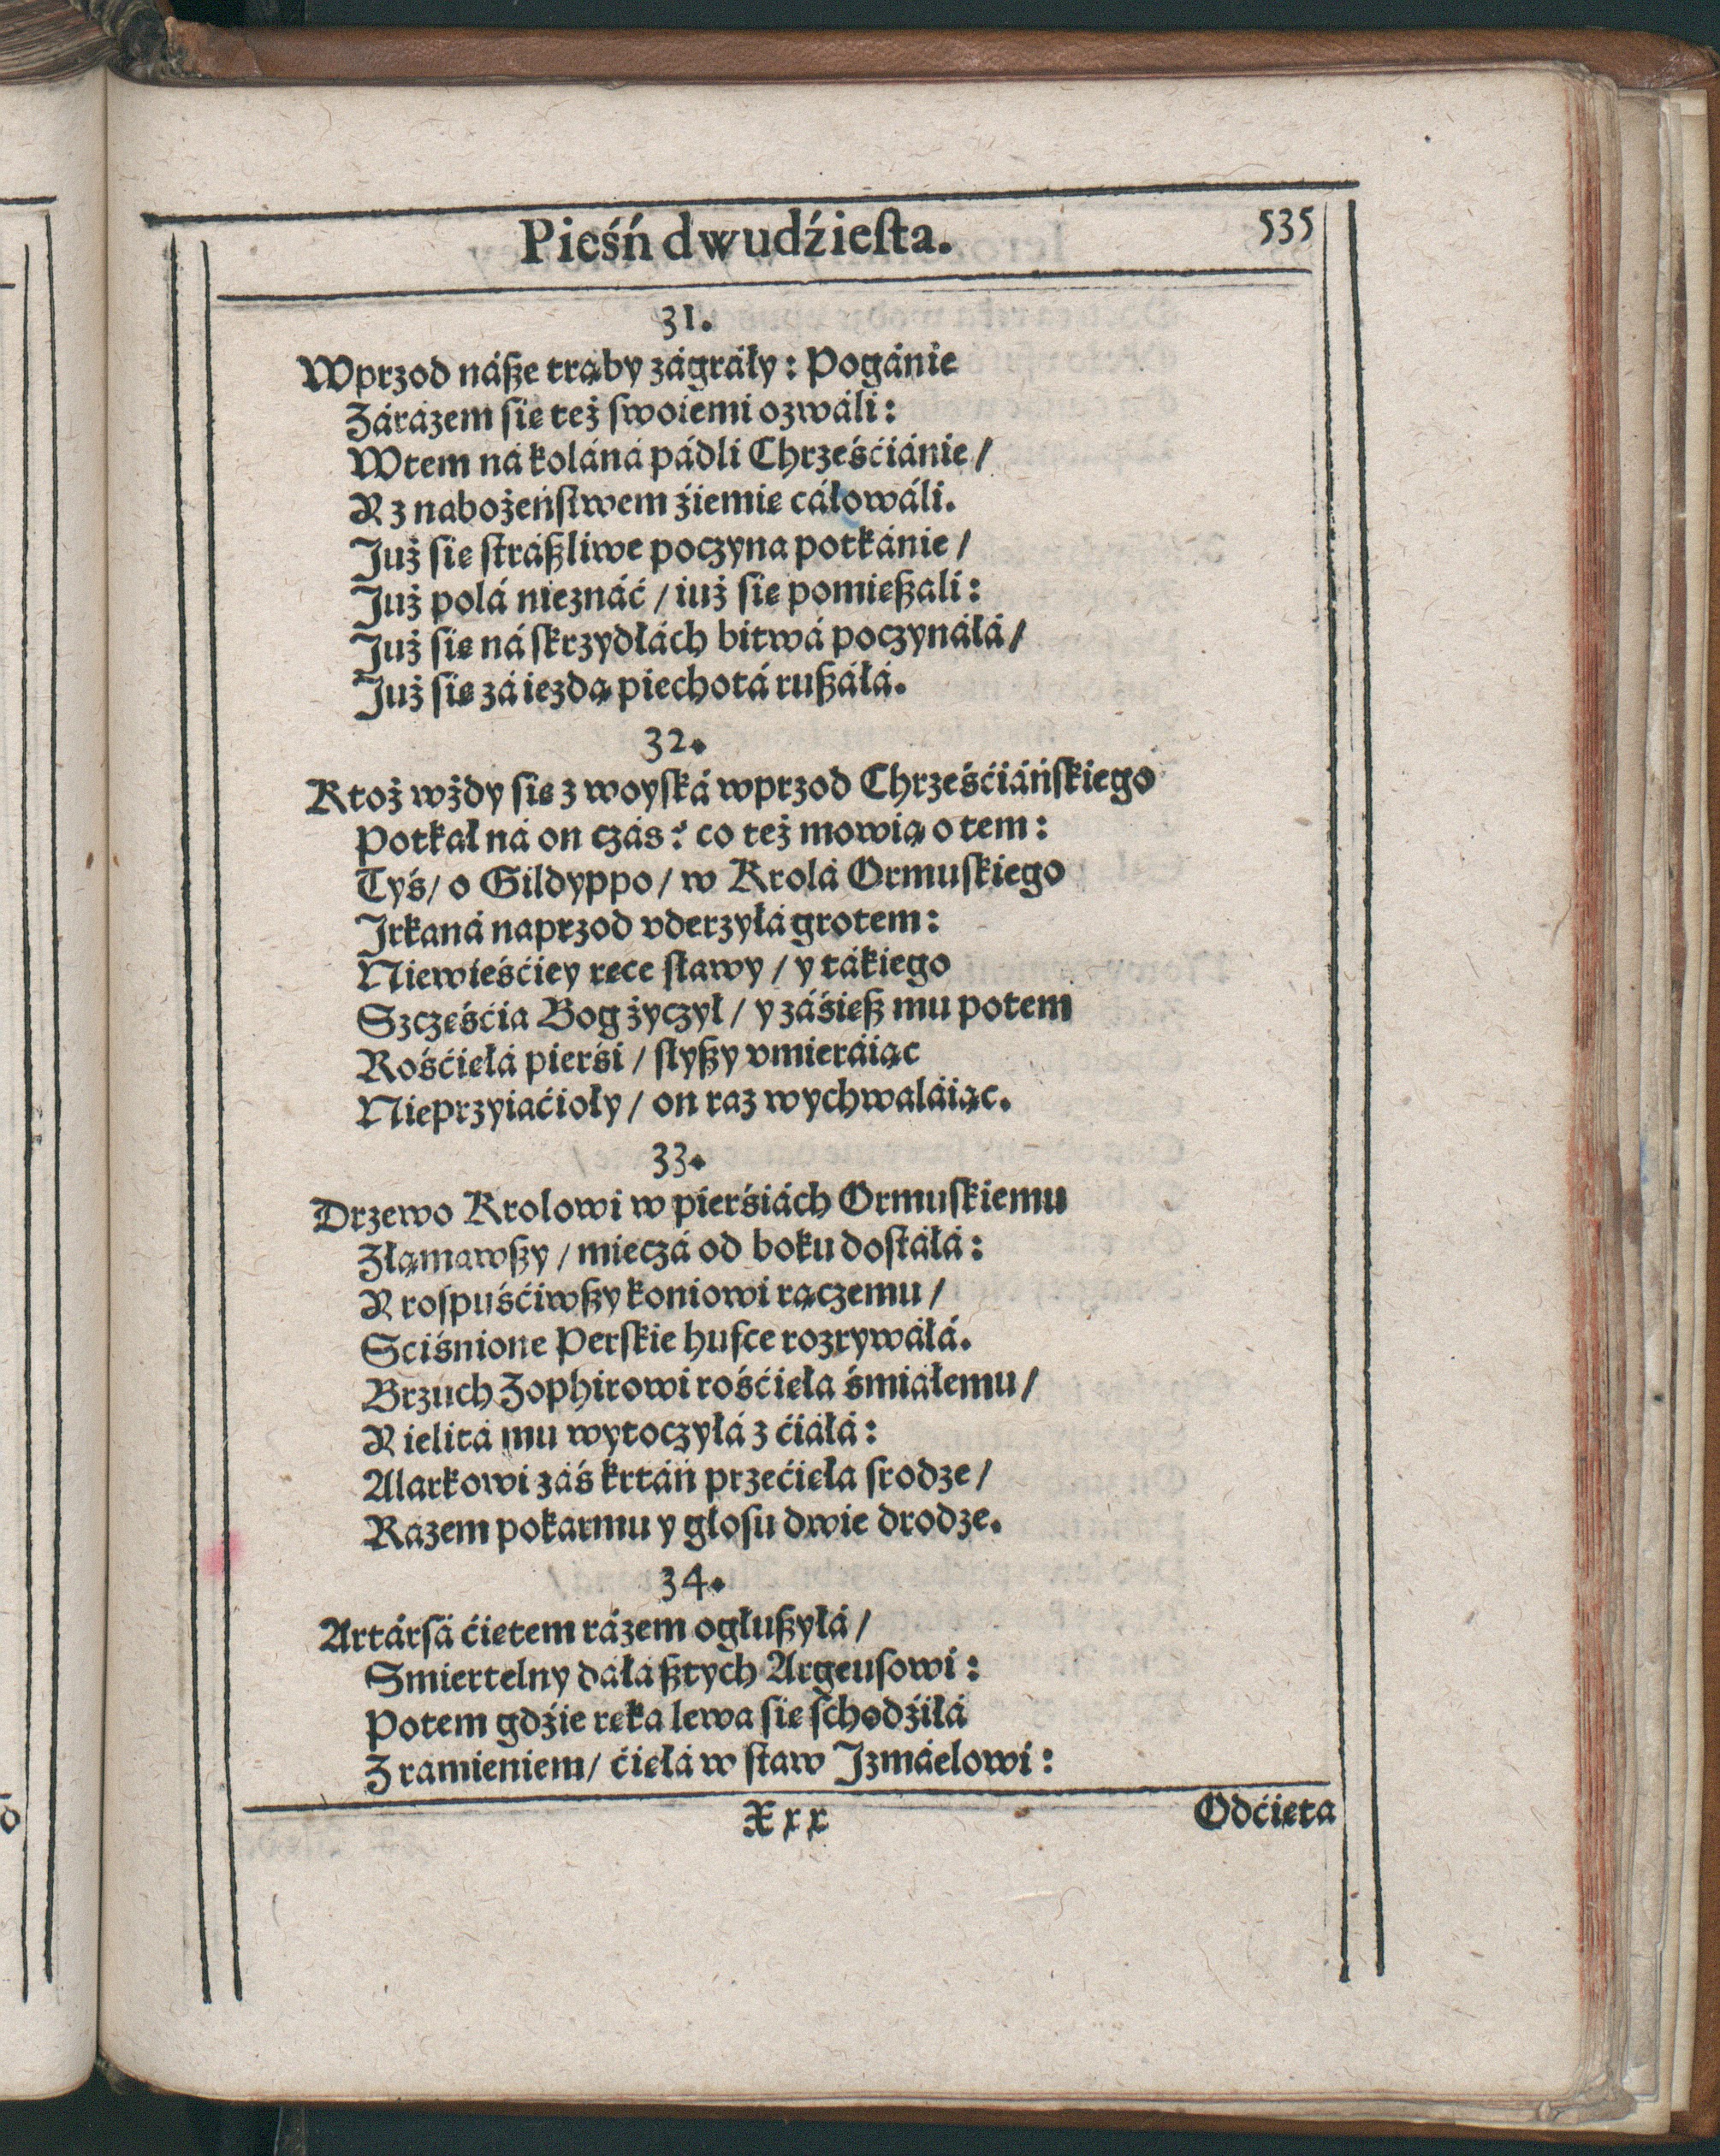 Pieśń dwudźiesta.
535
31.
Wprzod náße trąby zágráły: Pogánie
Zárázem się też swoiemi ozwáli:
Wtem ná koláná pádli Chrześćiánie/
Y z nabożeństwem źiemię cáłowáli.
Już się stráßliwe poczyna potkánie/
Już polá nieznáć/ iuż się pomießali:
Już się ná skrzydłách bitwá poczynáłá/
Już się zá iezdą piechotá rußáłá.
32.
Ktoż wżdy się z woyská wprzod Chrześćiáńskiego
Potkał ná on czás? co też mowią o tem:
Tyś/ o Gildyppo/ w Krolá Ormuskiego
Jrkaná naprzod vderzyłá grotem:
Niewieśćiey ręce sławy/ y tákiego
Szczęśćia Bog życzył/ y záśięß mu potem
Rośćięłá pierśi/ słyßy vmieráiąc
Nieprzyiaćioły/ on raz wychwaláiąc.
33.
Drzewo Krolowi w pierśiách Ormuskiemu
Złąmawßy/ mieczá od boku dostáłá:
Y rospuśćiwßy koniowi rączemu/
Sciśnione Perskie hufce rozrywáłá.
Brzuch Zophirowi rośćięła śmiáłemu/
Y ielitá mu wytoczyłá z ćiáłá:
Alarkowi záś krtáń przećięła srodze/
Rázem pokarmu y głosu dwie drodze.
34.
Artársá ćiętem rázem ogłußyłá/
Smiertelny dáłá ßtych Argeusowi:
Potem gdźie ręka lewa się schodźiłá
Z ramieniem/ ćięłá w staw Jzmáelowi:
Xxx
Odćięta